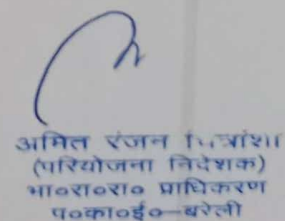 अमित रंजन
(परियोजना निदेशक)
भा०रा०रा० प्राधिकरण
प०का०ई०–बरेली